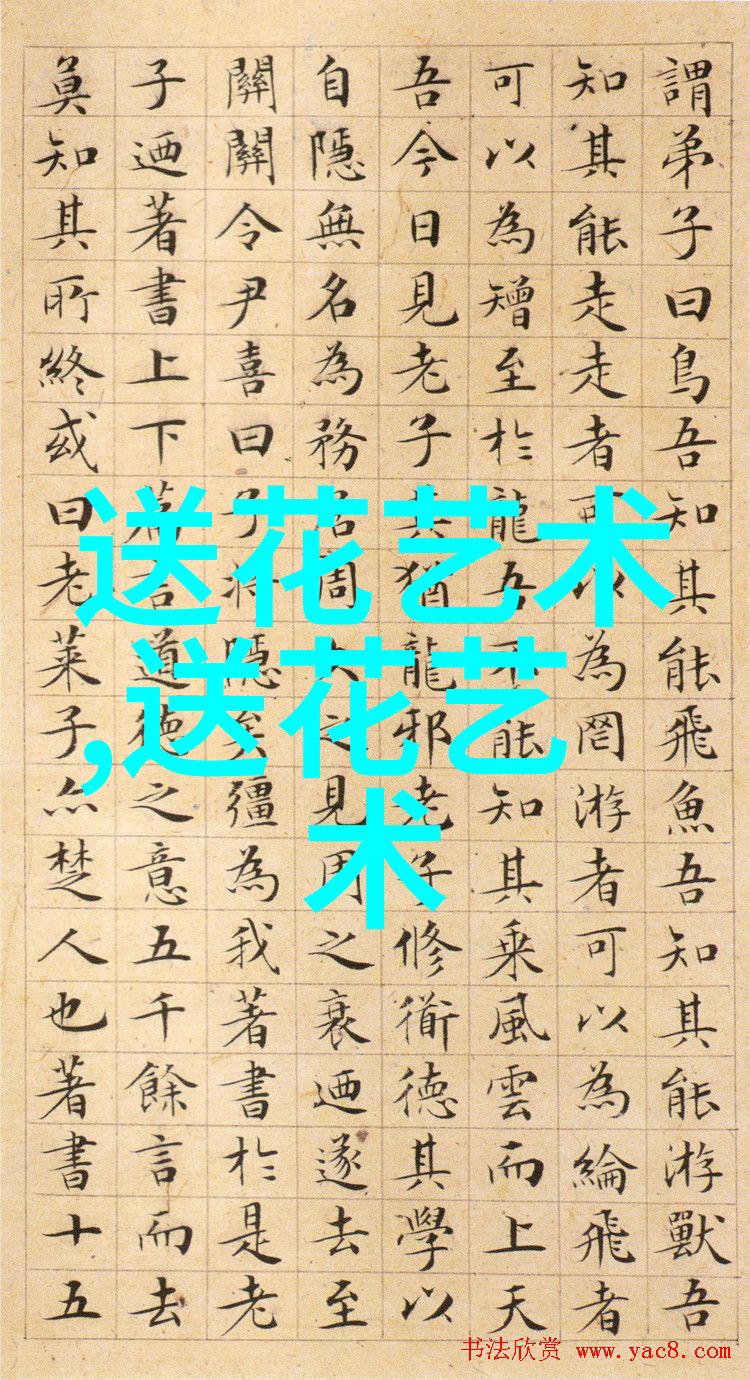 謂弟子曰鳥吾知其能飛魚吾知其能游獸吾
知其能走走者可以為罔游者可以為綸飛者
可以為矰至於龍吾不能知其乘風雲而上天
吾今日見老子其猶龍邪老子修衜德其學以
自隱無名為務居周久之見周之衰迺遂去至
關關令尹喜曰子將隱矣彊為我著書於是老
子迺著書上下篇言道德之意五千餘言而去
莫知其所終或曰老萊子亦楚人也著書十五
送花艺术
,送花艺
术
书法欣赏 www.yac8.com